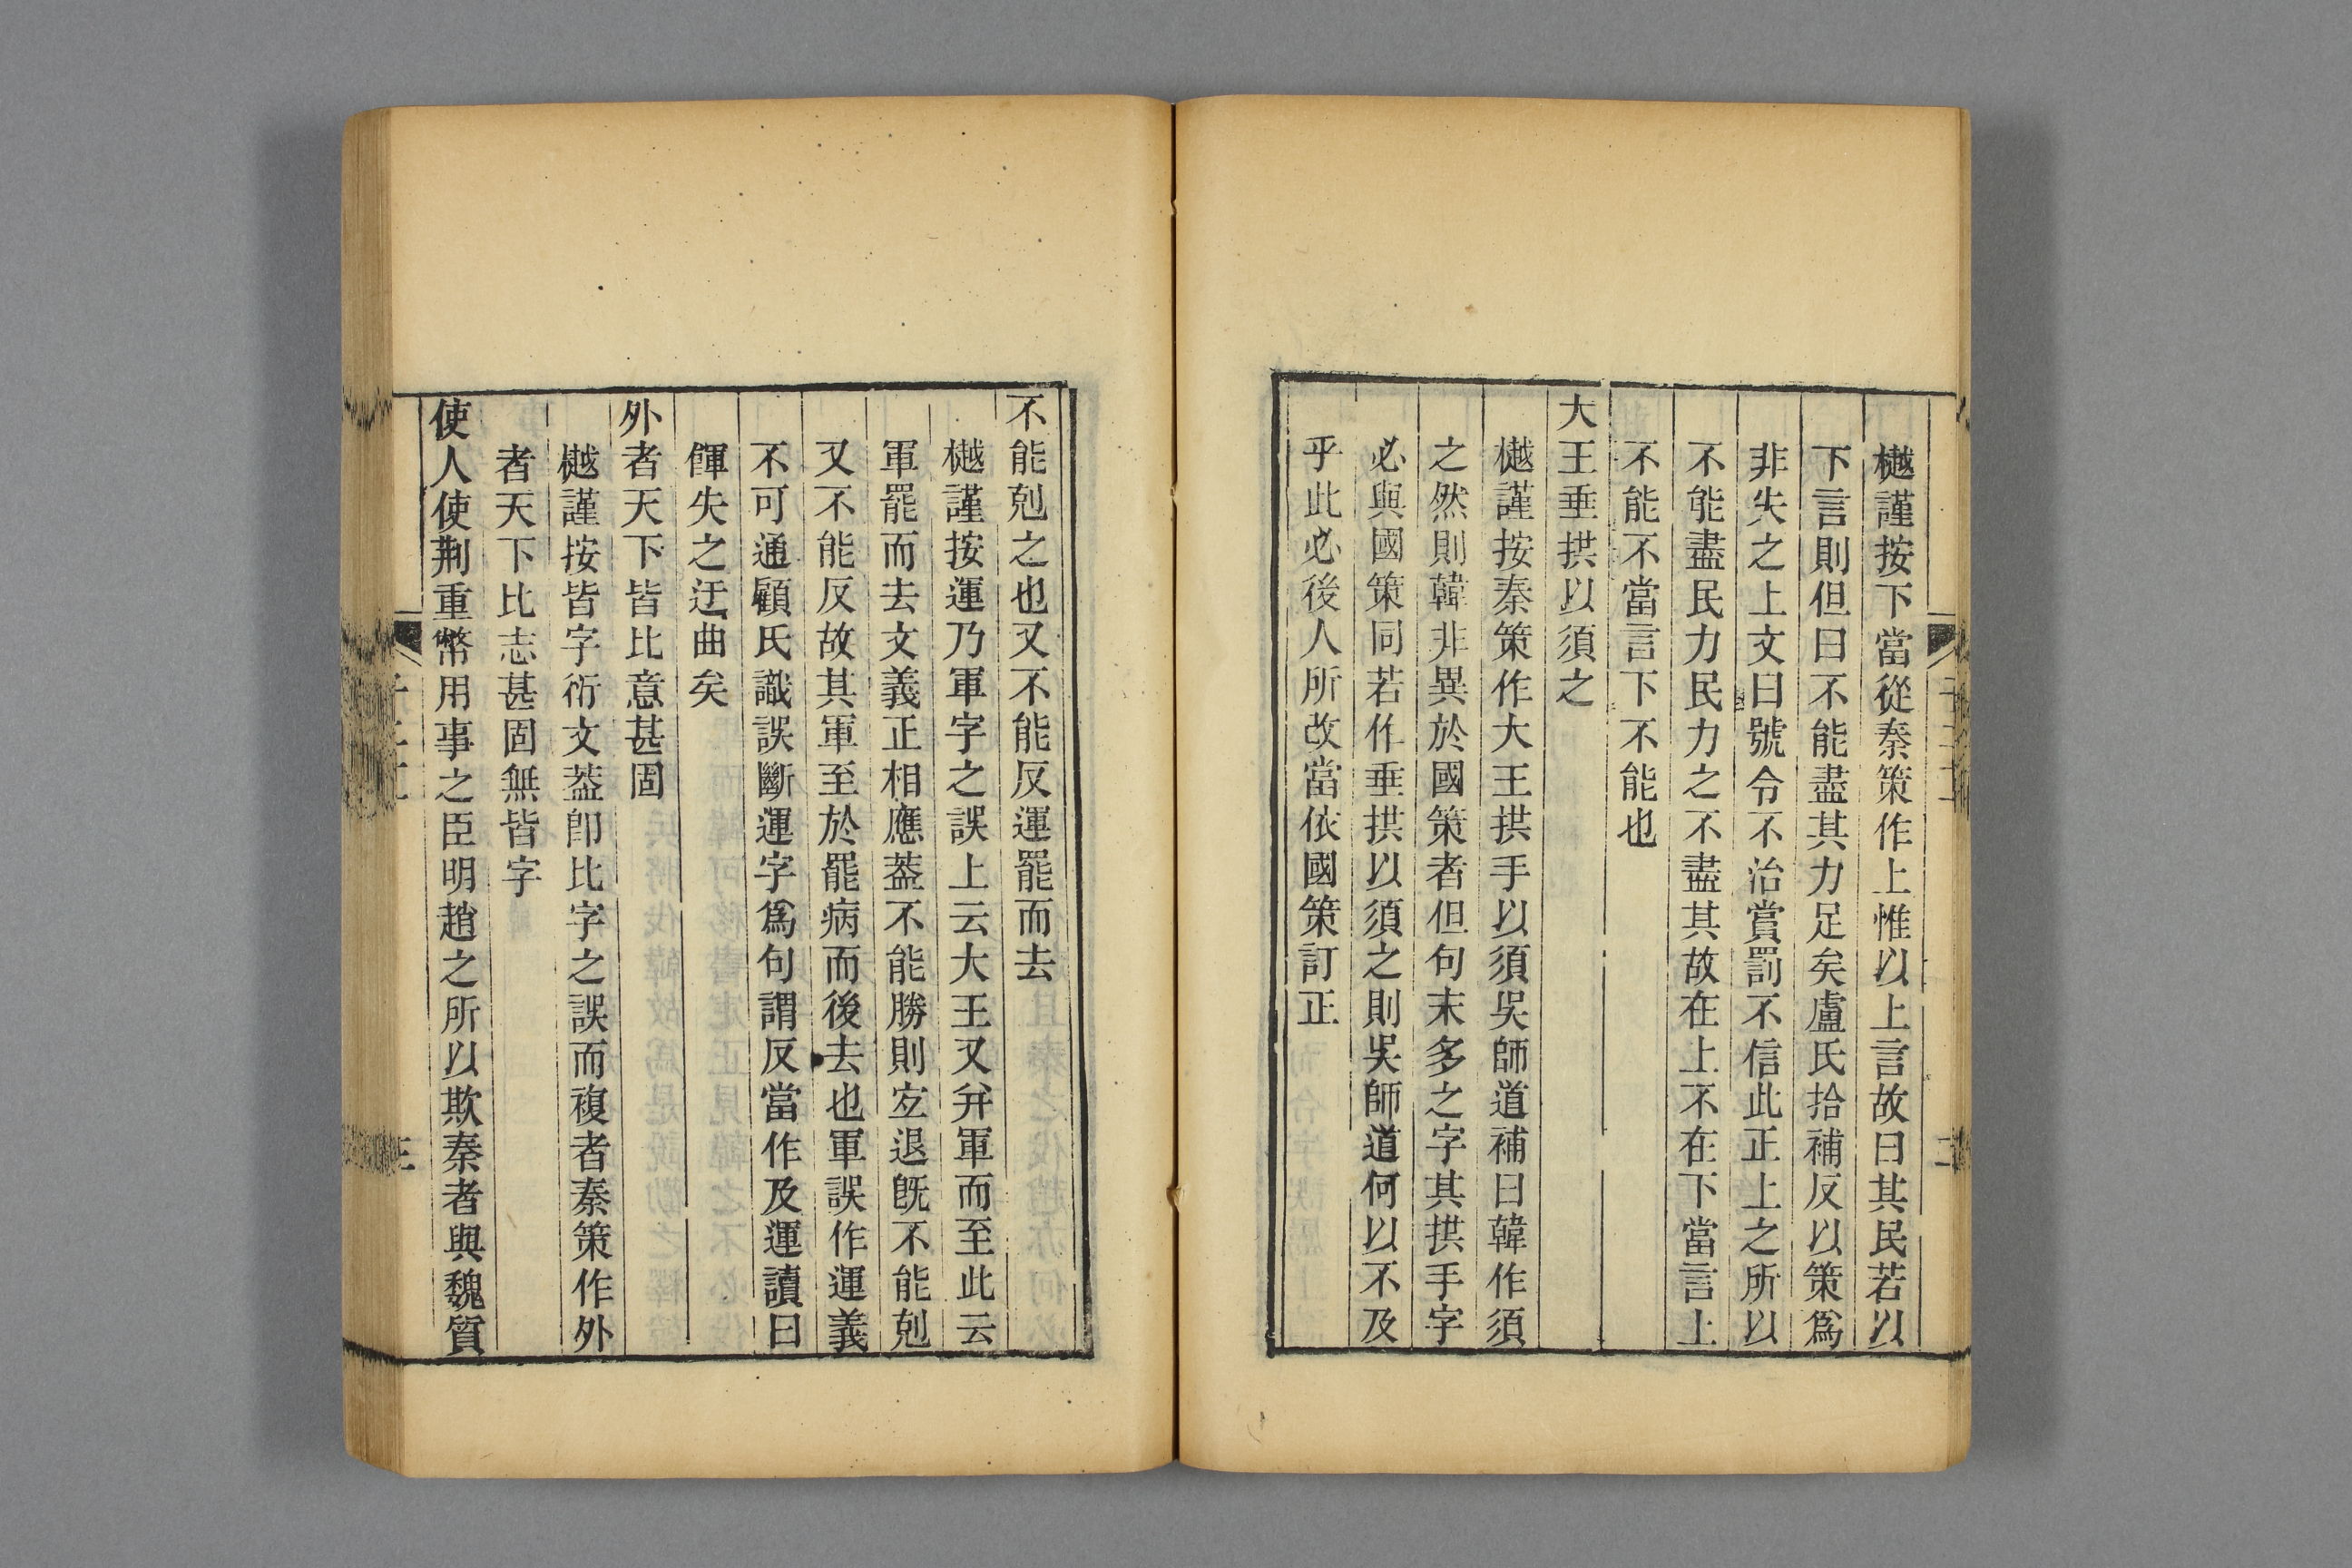 樾謹按下當從秦策作上惟以上言故曰其民若以
下言則但曰不能盡其力足矣盧氏拾補反以策爲
非失之上文曰號令不治賞罰不信此正上之所以
不能盡民力民力之不盡其故在上不在下當言上
不能不當言下不能也
大王垂拱以須之
樾謹按秦策作大王拱手以須吳師道補曰韓作須
之然則韓非異於國策者但句末多之字其拱手字
必與國策同若作垂拱以須之則吳師道何以不及
乎此必後人所改當依國策訂正
不能剋之也又不能反運罷而去
樾謹按運乃軍字之誤上云大王又幷軍而至此云
軍罷而去文義正相應葢不能勝則宐退旣不能剋
又不能反故其軍至於罷病而後去也軍誤作運義
不可通顧氏識誤斷運字爲句謂反當作及運讀曰
餫失之迂曲矣
外者天下皆比意甚固
樾謹按皆字衍文葢卽比字之誤而複者秦策作外
者天下比志甚固無皆字
使人使荆重幣用事之臣明趙之所以欺秦者與魏質